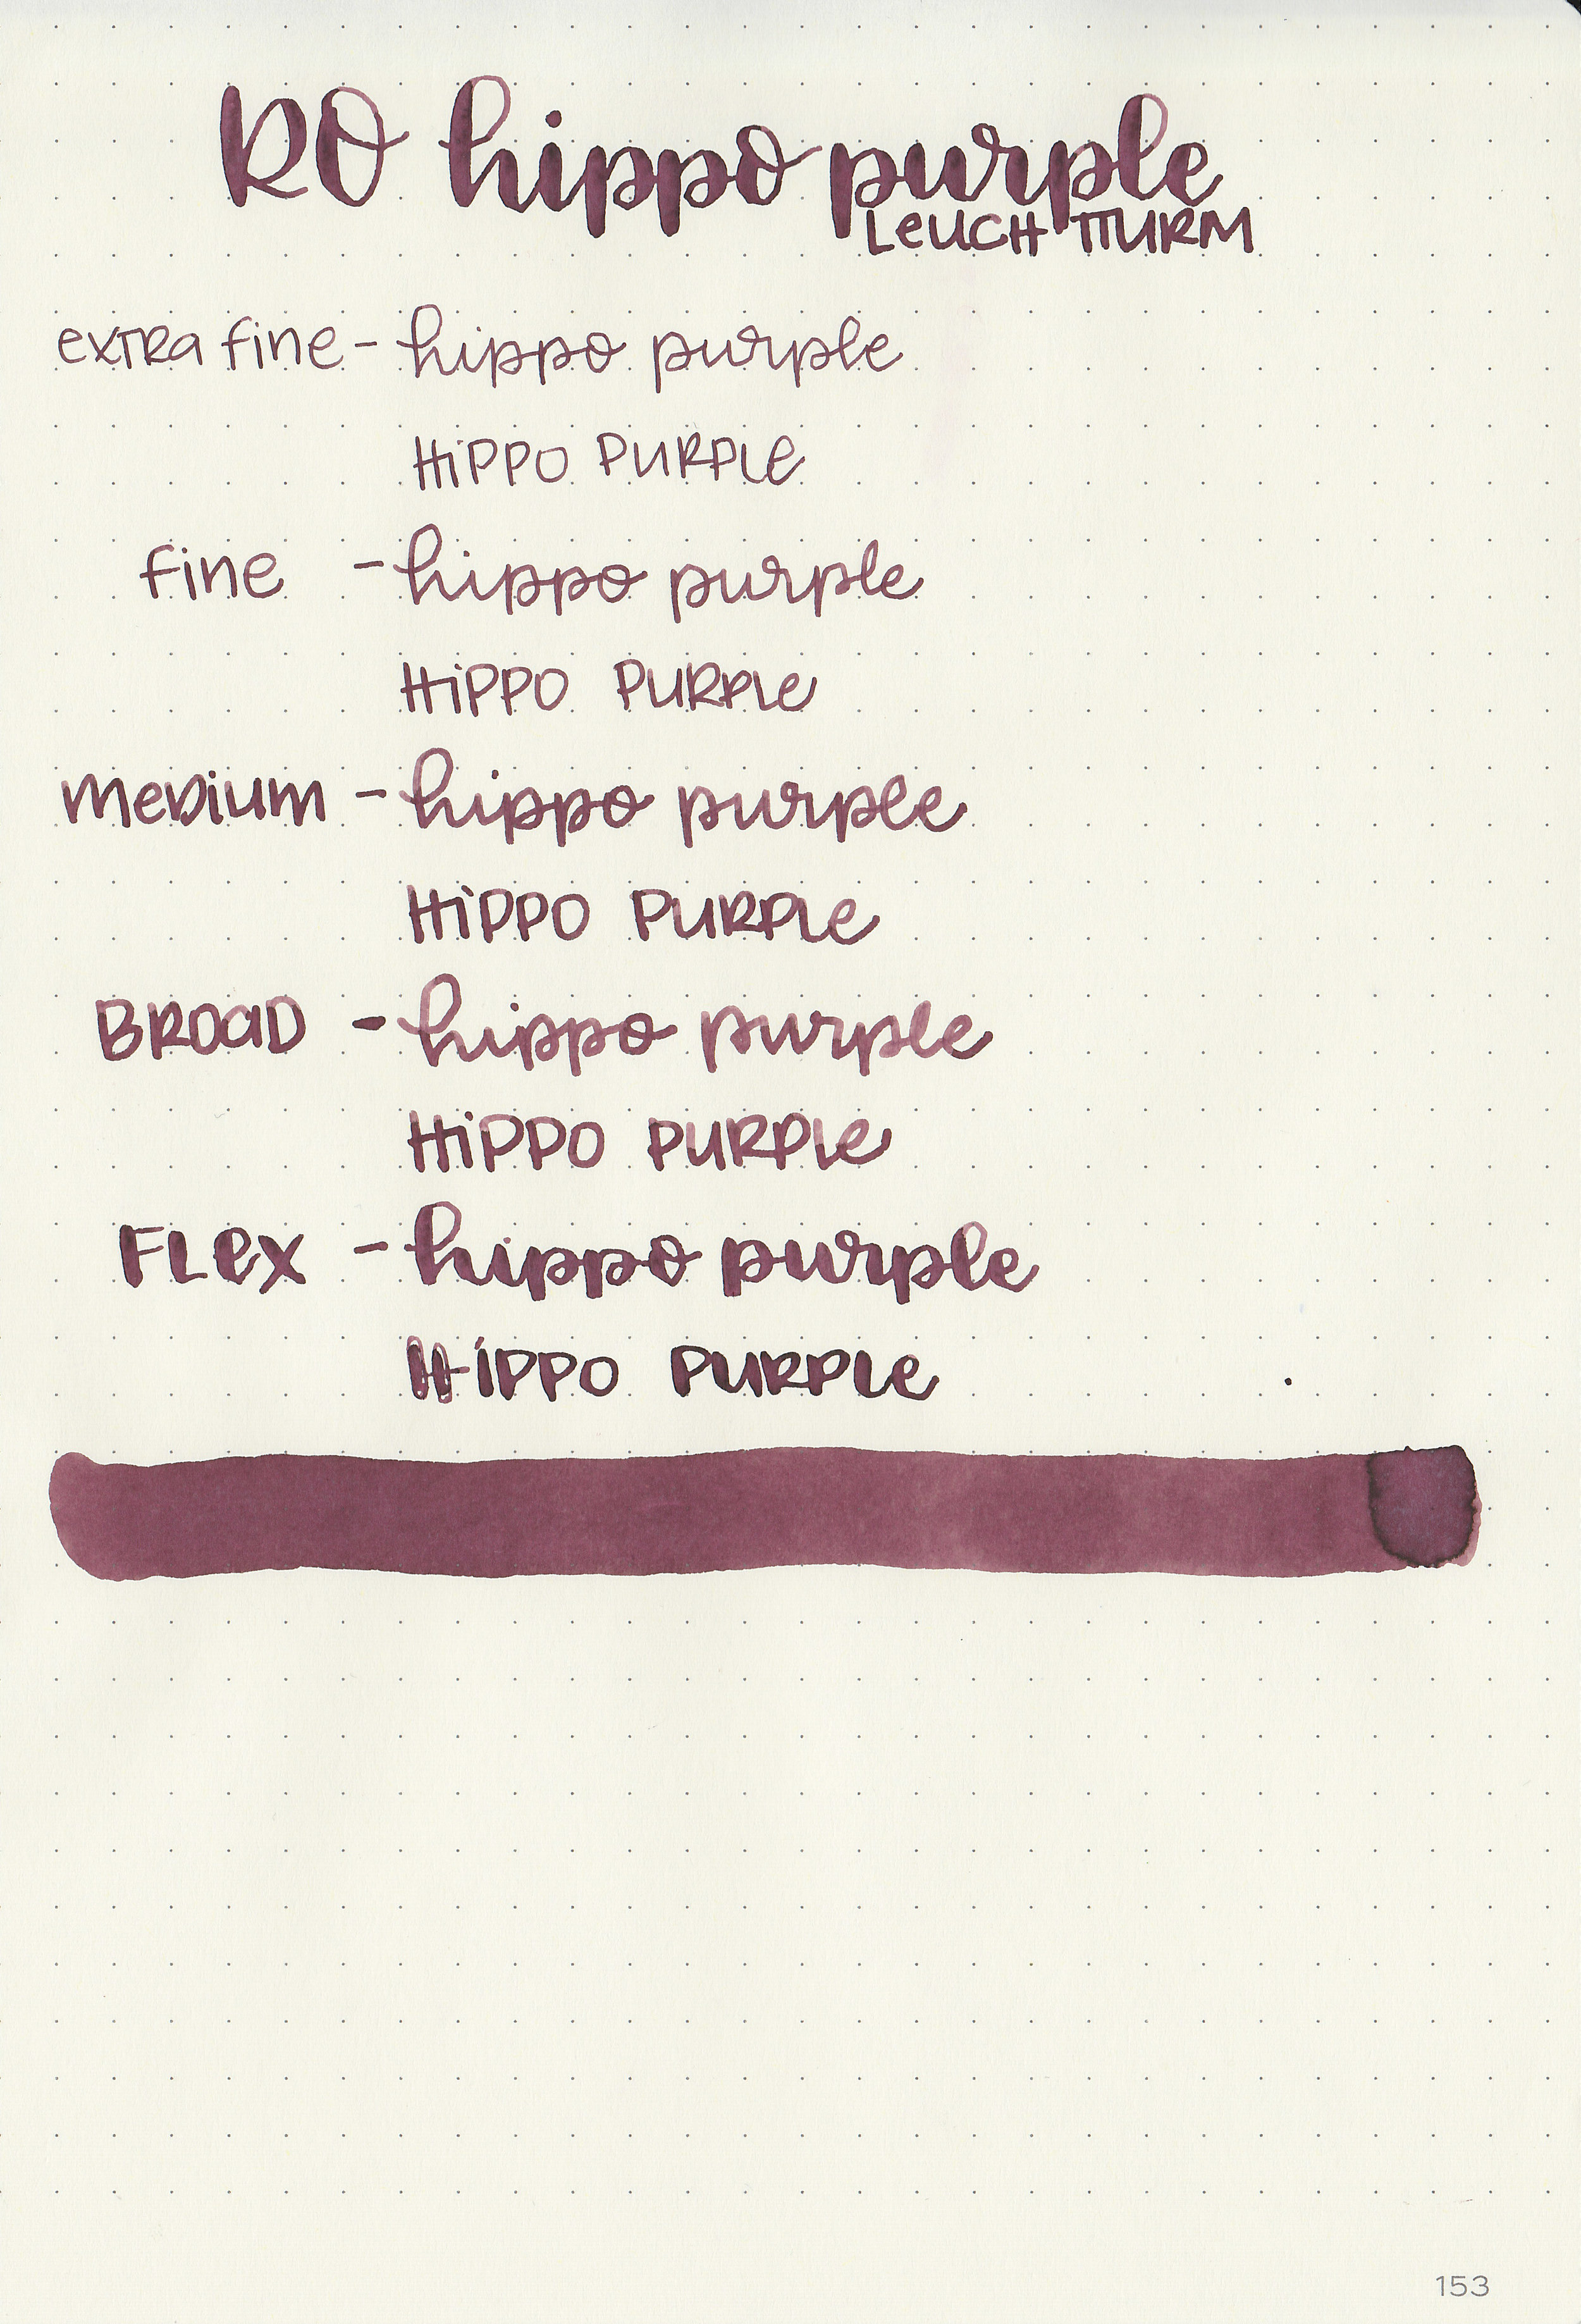 RO hippo purple
LeUCHTTURM
exTRa fine - hippo purple
HiPPO PURPLe
fine - hippo purple
HiPPO PURPLe
MeDiuM - hippo purple
HiPPO PURPLe
BROaD - hippo purple
HiPPO PURPLe
FLex - hippo purple
HiPPO PURPLe
153